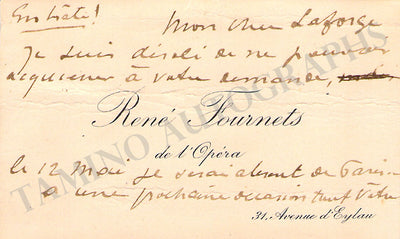 En hâte!
Mon cher Laforge
Je suis désolé de ne pouvoir
acquiescer à votre demande,
René Fournets
de l'Opéra
le 12 Mai je serai absent de Paris
à une prochaine occasion tout Votre
31, Avenue d'Eylau
TAMINO AUTOGRAPHS